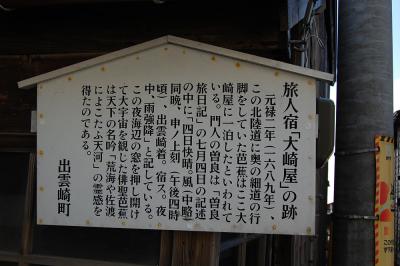 旅人宿「大崎屋」の跡
元禄二年(一六八九年)、
この北陸道に奥の細道の行
脚をしていた芭蕉はここ大
崎屋に一泊したといわれて
いる。門人の曽良は「曽良
旅日記」の七月四日の記述
の中に「四日快晴。風(中略)
同晩、申ノ上刻(午後四時
頃)、出雲崎着。宿ス。夜
中、雨強降」と記している。
この夜海辺の窓を押し開け
て大宇宙を観じた俳聖芭蕉
は天下の名吟「荒海や佐渡
によこたふ天河」の霊感を
得たのである。
出雲崎町